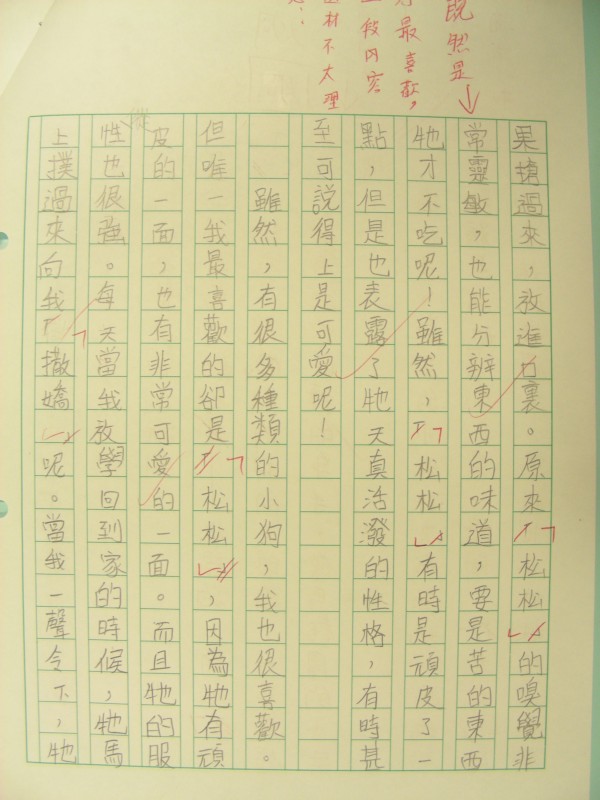 既然是
最喜歡，
段內容
材不大理
果搶過來，放進口裏。原來「松松」的嗅覺非
常靈敏，也能分辨東西的味道，要是苦的東西
牠才不吃呢！雖然，「松松」有時是頑皮了一
點，但是也表露了牠天真活潑的性格，有時甚
至可說得上是可愛呢！
雖然，有很多種類的小狗，我也很喜歡。
但唯一我最喜歡的卻是「松松」，因為牠有頑
皮的一面，也有非常可愛的一面。而且牠的服
從性也很強。每天當我放學回到家的時候，牠馬
上撲過來向我「撒嬌」呢。當我一聲令下，牠